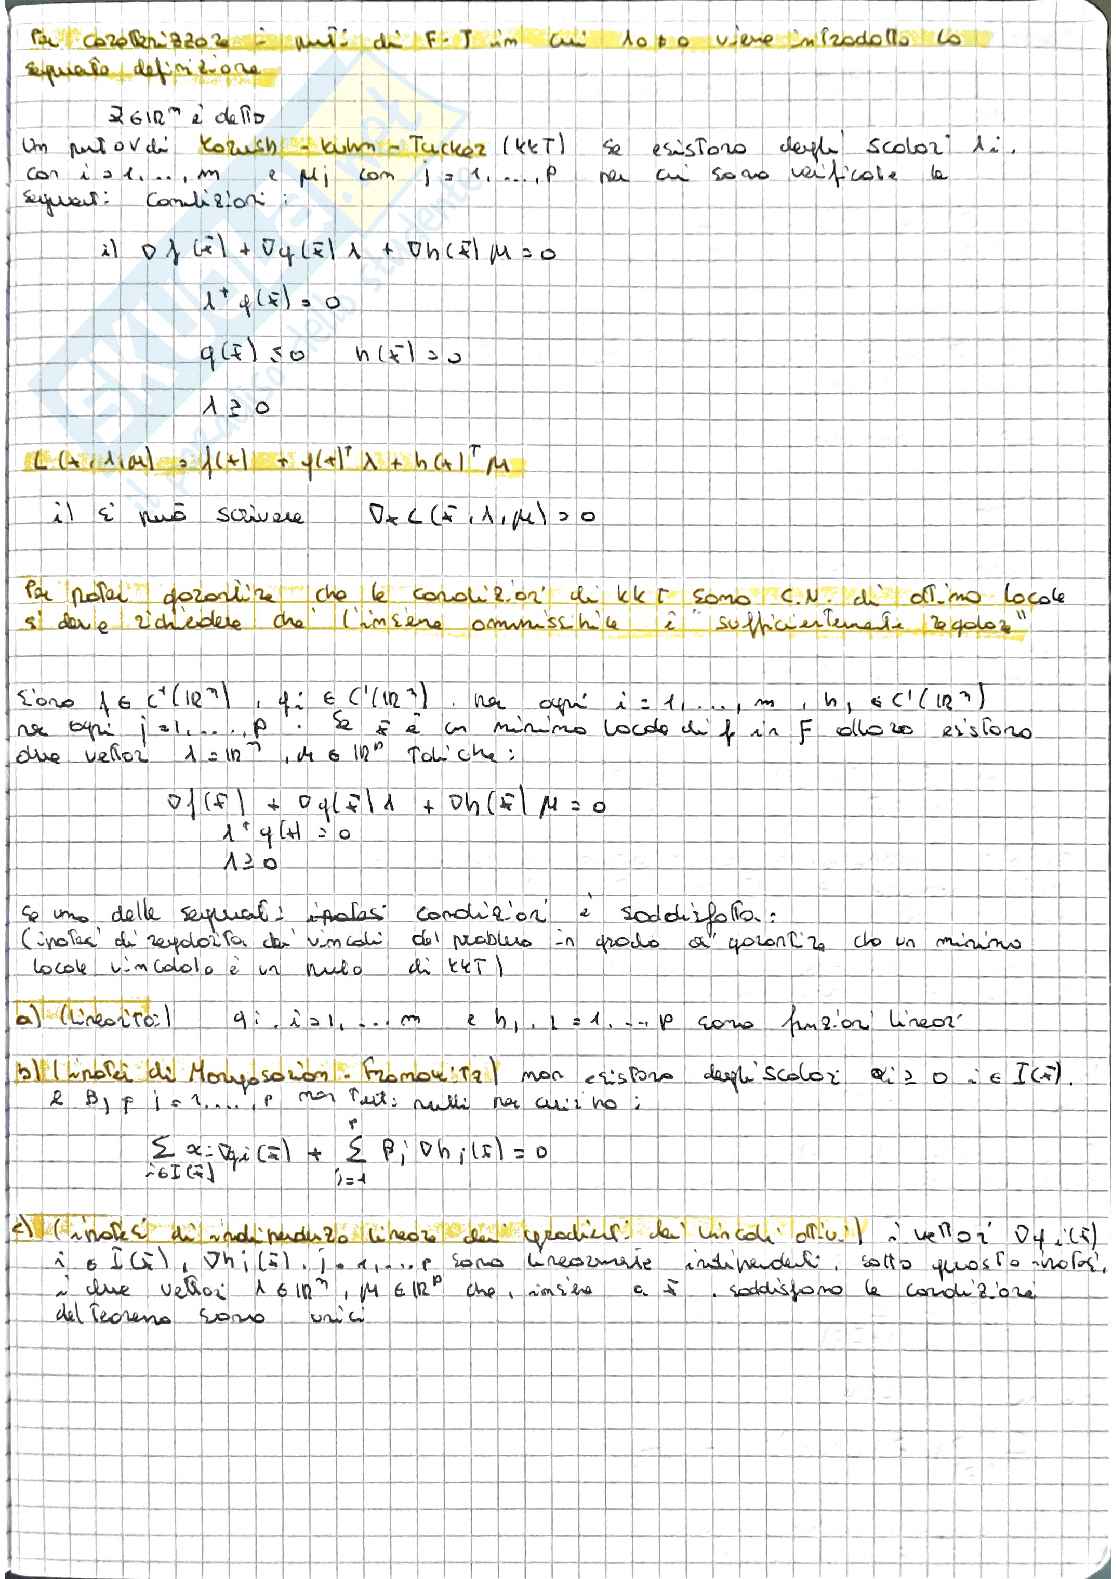 Per caratterizzare i punti di F-J in cui λ0≠0 viene introdotta la
seguente definizione
x̄∈ℝⁿ è detto
Un punto di Karush-Kuhn-Tucker (KKT) se esistono degli scalari λi,
con i=1,...,m e μj con j=1,...,p per cui sono verificate le
seguenti condizioni:
i) ∇f(x̄) + ∇g(x̄)λ + ∇h(x̄)μ = 0
λᵀg(x̄) = 0
g(x̄) ≤ 0 h(x̄) = 0
λ ≥ 0
L(x,λ,μ) = f(x) + g(x)ᵀλ + h(x)ᵀμ
i) si può scrivere ∇xL(x̄,λ,μ) = 0
Per poter garantire che le condizioni di KKT sono C.N. di ottimo locale
si deve richiedere che l'insieme ammissibile è "sufficientemente regolare"
Siano f∈C¹(ℝⁿ), gi∈C¹(ℝⁿ) per ogni i=1,...,m, hj∈C¹(ℝⁿ)
per ogni j=1,...,p. Se x̄ è un minimo locale di f in F allora esistono
due vettori λ=ℝᵐ, μ∈ℝᵖ tali che:
∇f(x̄) + ∇g(x̄)λ + ∇h(x̄)μ = 0
λᵀg(x) = 0
λ≥0
Se una delle seguenti ipotesi condizioni è soddisfatta:
(ipotesi di regolarità dei vincoli del problema in grado di garantire che un minimo
locale vincolato è un punto di KKT)
a) (Linearità) gi, i=1,...m e hj, j=1,...p sono funzioni lineari
b) (ipotesi di Mangasarian-Fromovitz) non esistono degli scalari αi≥0 i∈I(x̄),
e βj, j=1,...,p non tutti nulli per cui :
∑i∈I(x̄) αi∇gi(x̄) + ∑j=1p βj∇hj(x̄) = 0
c) (ipotesi di indipendenza lineare dei gradienti dei vincoli attivi) i vettori ∇gi(x̄)
i∈I(x̄), ∇hj(x̄), j=1,...p sono linearmente indipendenti, sotto questa ipotesi,
i due vettori λ∈ℝᵐ, μ∈ℝᵖ che, insieme a x̄, soddisfano le condizioni
del Teorema sono unici
SKUOLA.net
il paradiso dello studente